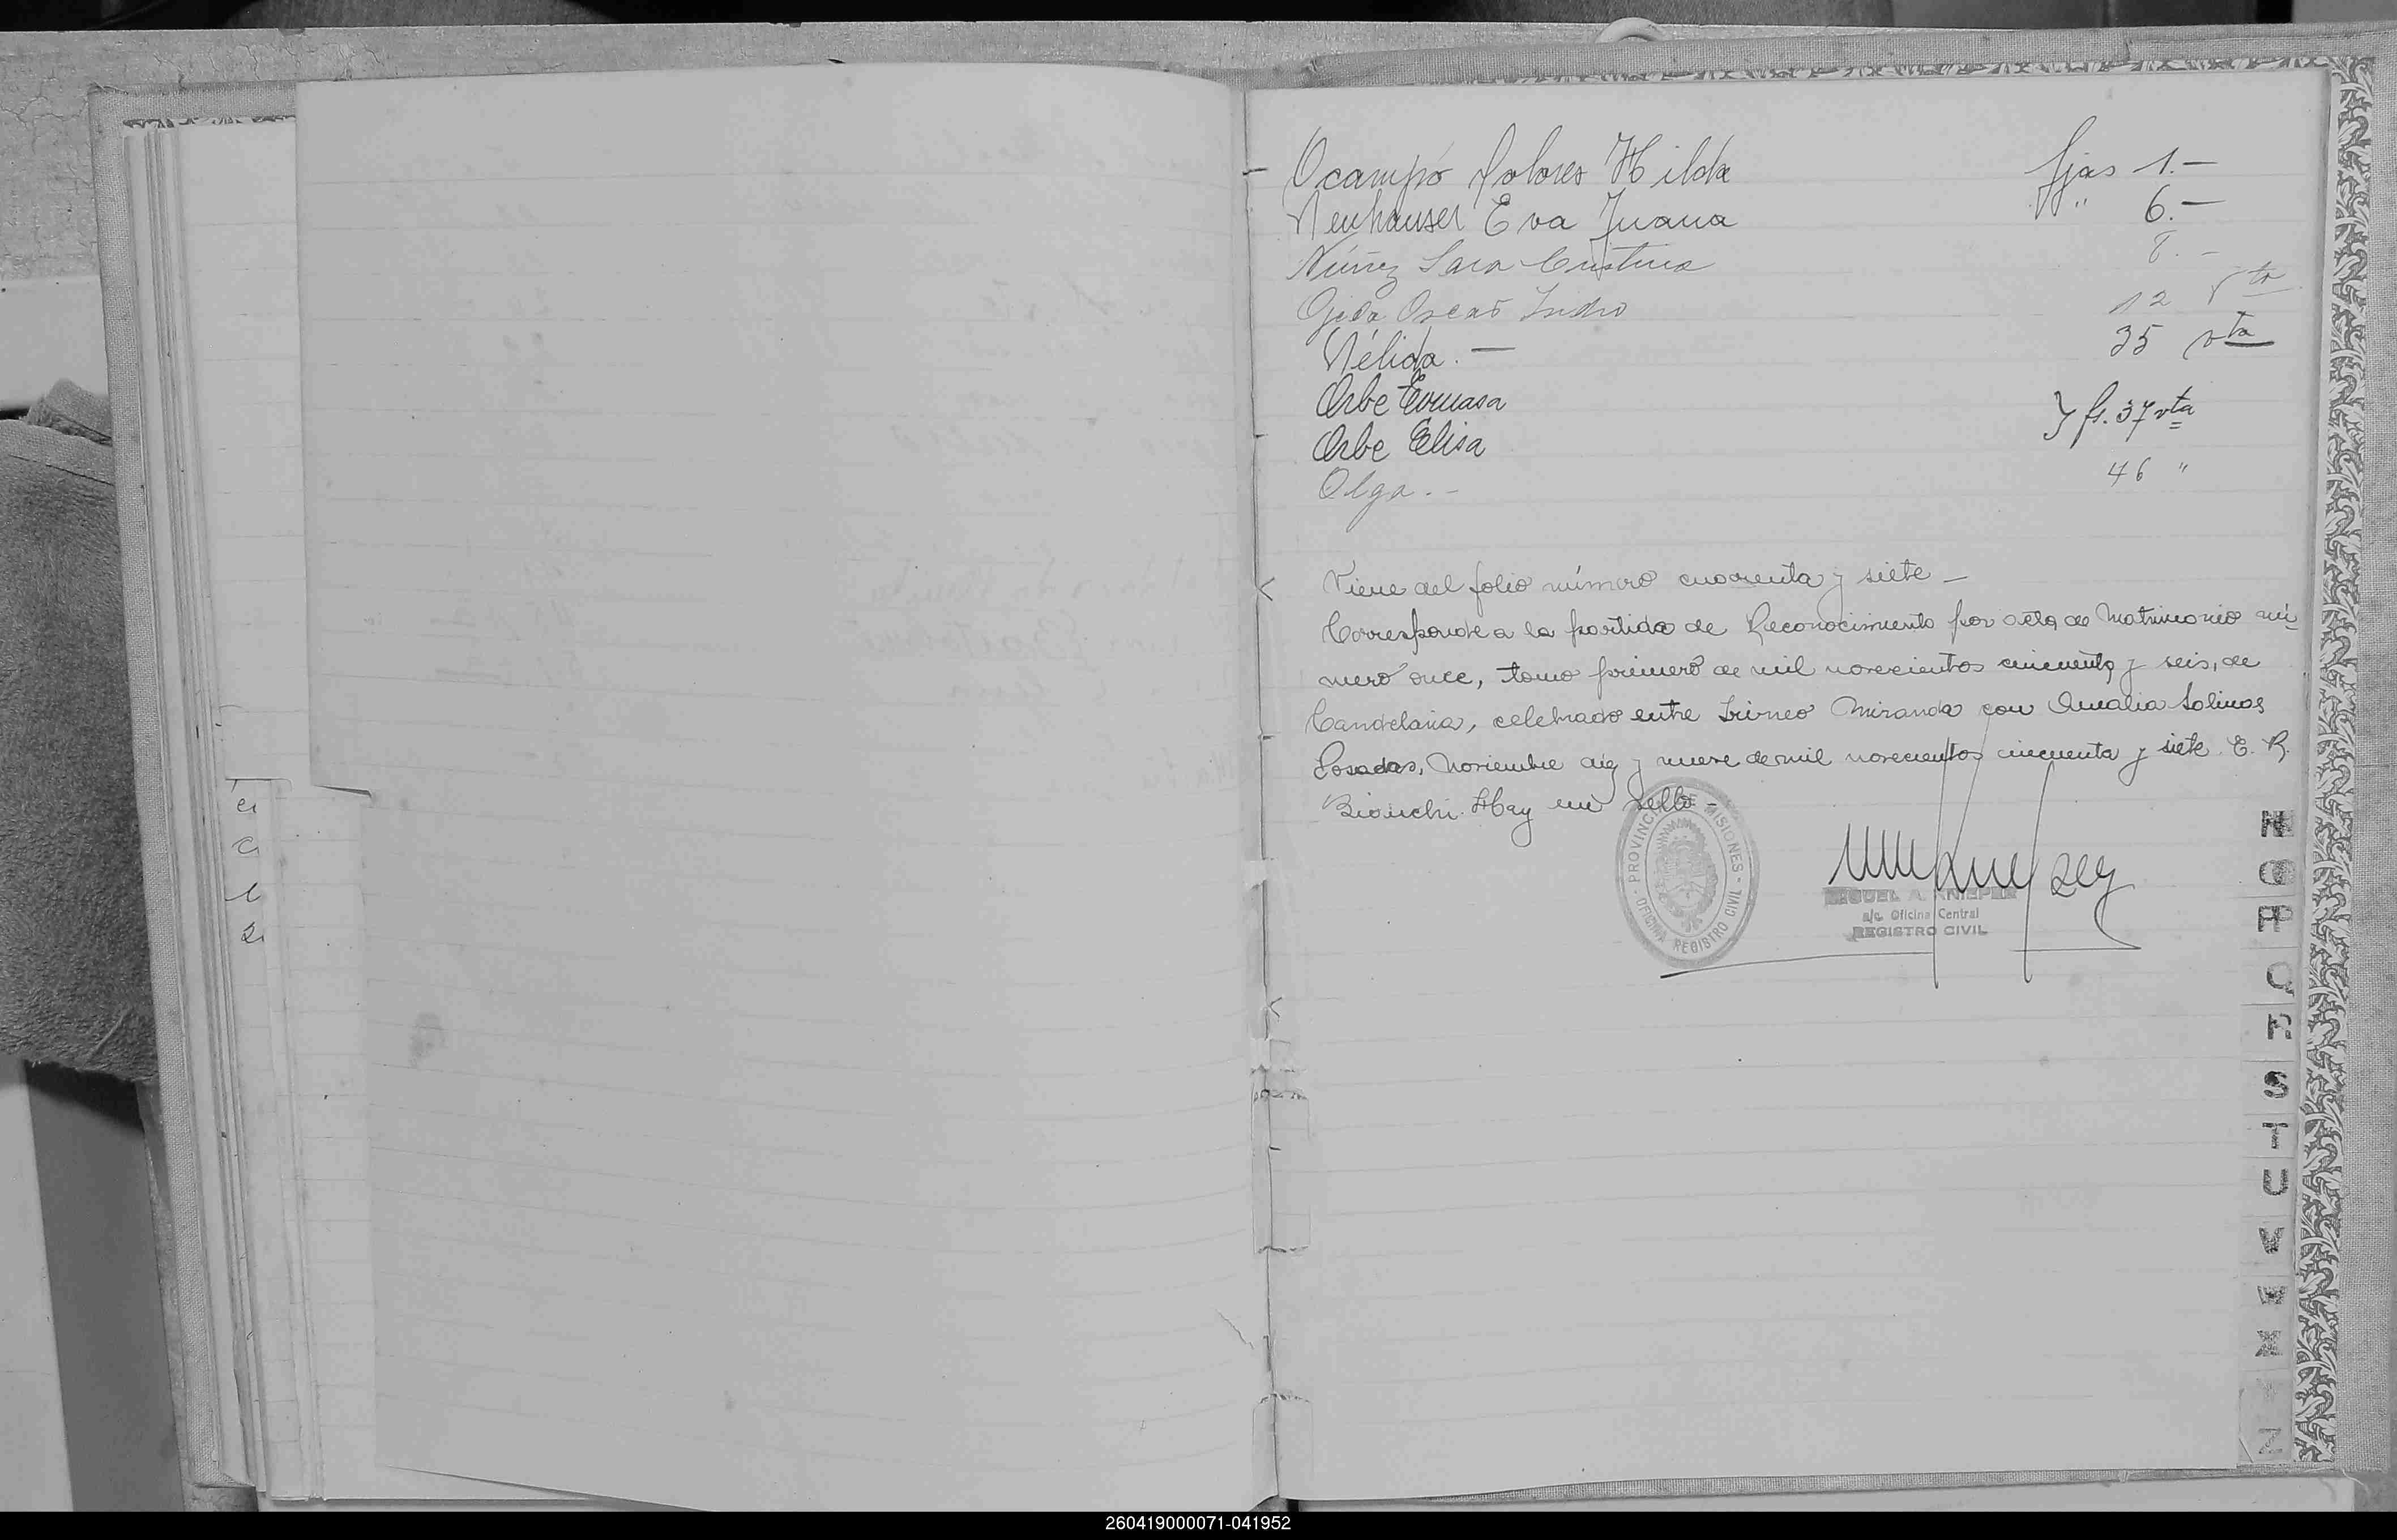 Ocampo Dolores Hilda fjas 1.—
Neuhauser Eva Juana " 6.—
Núñez Sara Cristina 8.-
Ojeda Oscar Isidro 12 vta
Nélida.— 35 vta
Orbe Tomasa
Orbe Elisa } fs. 37 vta
Olga.- 46 "
Viene del folio número cuarenta y siete—
Corresponde a la partida de Reconocimiento por acta de Matrimonio nú-
mero once, tomo primero de mil novecientos cincuenta y seis, de
Candelaria, celebrado entre Irineo Miranda con Amalia Salinas
Posadas, Noviembre diez y nueve de mil novecientos cincuenta y siete. E. R.
Bianchi. Hay un sello-
PROVINCIA DE MISIONES - OFICINA REGISTRO CIVIL -
MIGUEL A.
a/c. Oficina Central
REGISTRO CIVIL
er
c
l
N
O
P
Q
R
S
T
U
V
W
X
Y
Z
260419000071-041952